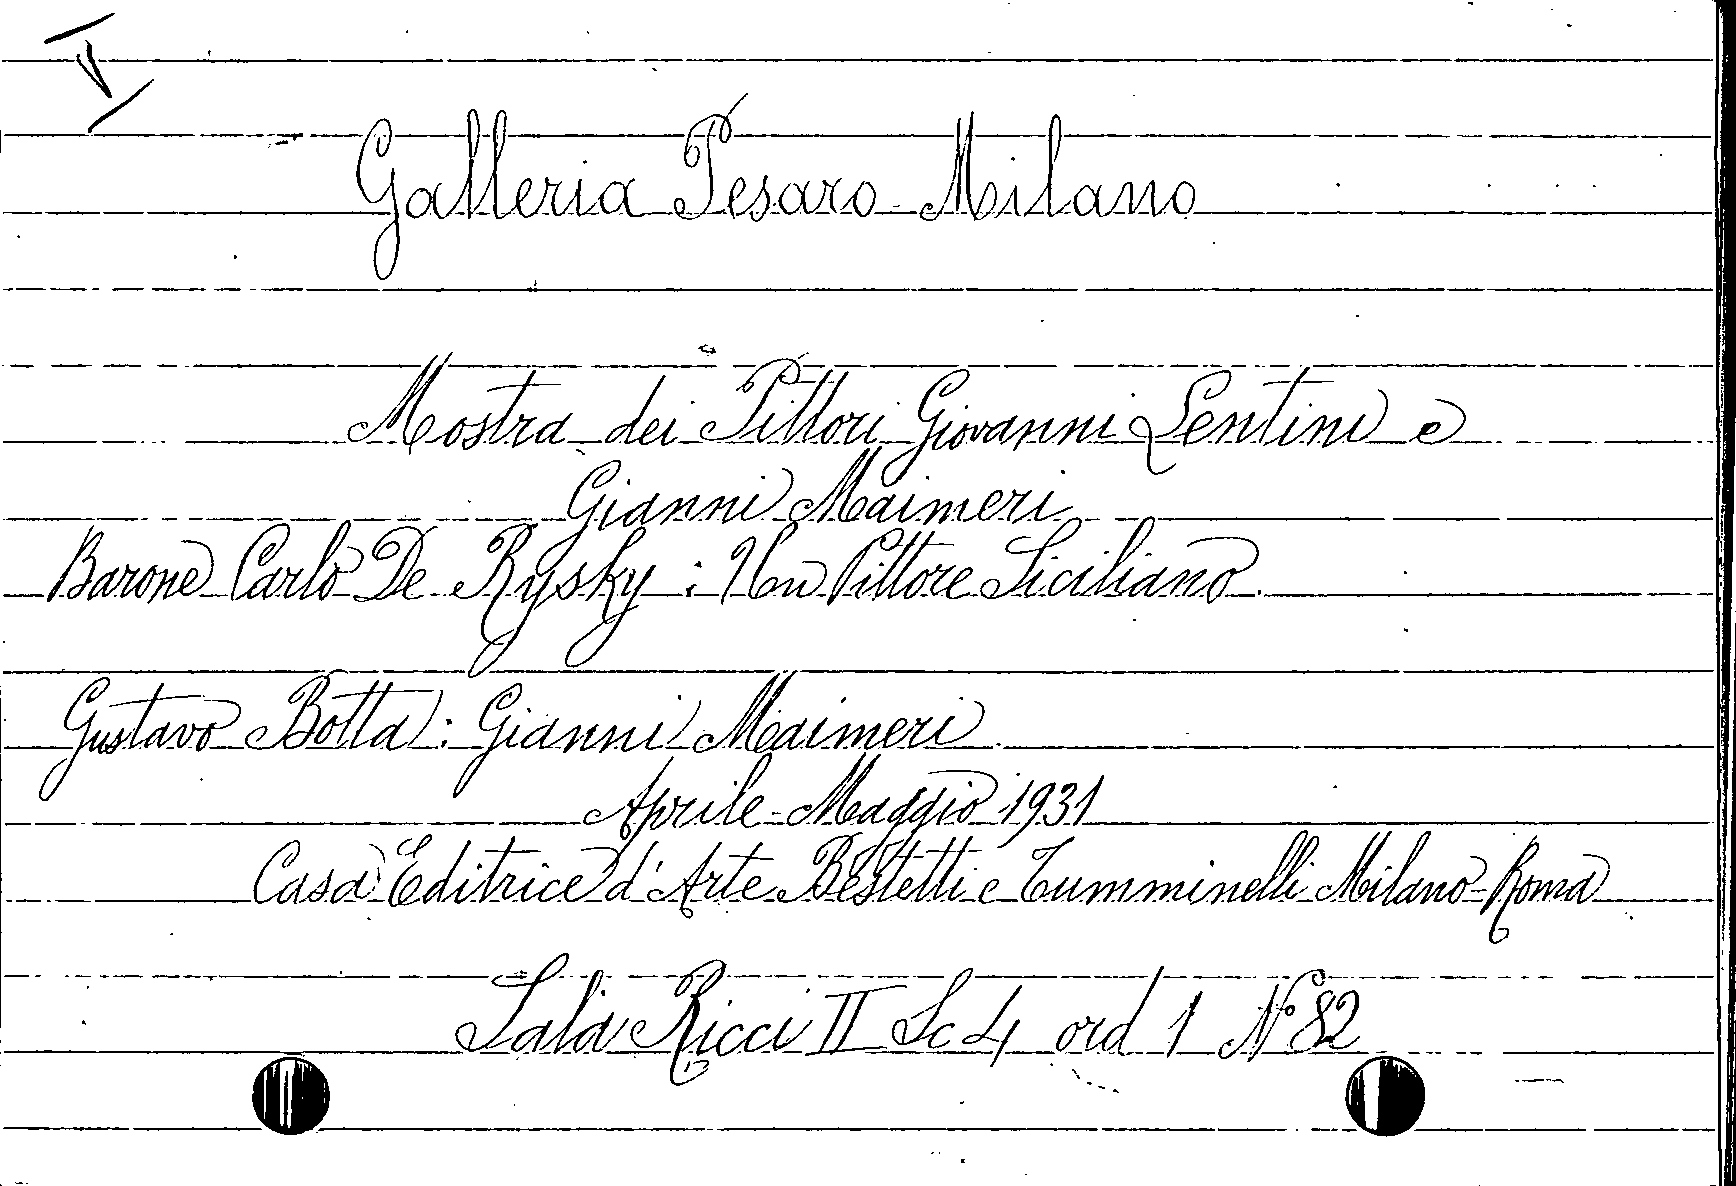 Galleria Pesaro - Milano
Mostra dei Pittori Giovanni Lentini e
Gianni Maimeri
Barone Carlo De Rysky : Un Pittore Siciliano
Gustavo Botta : Gianni Maimeri
Aprile - Maggio 1931
Casa Editrice d'Arte Bestetti e Tumminelli Milano - Roma
Sala Ricci II Sc 4 ord 1 N° 82